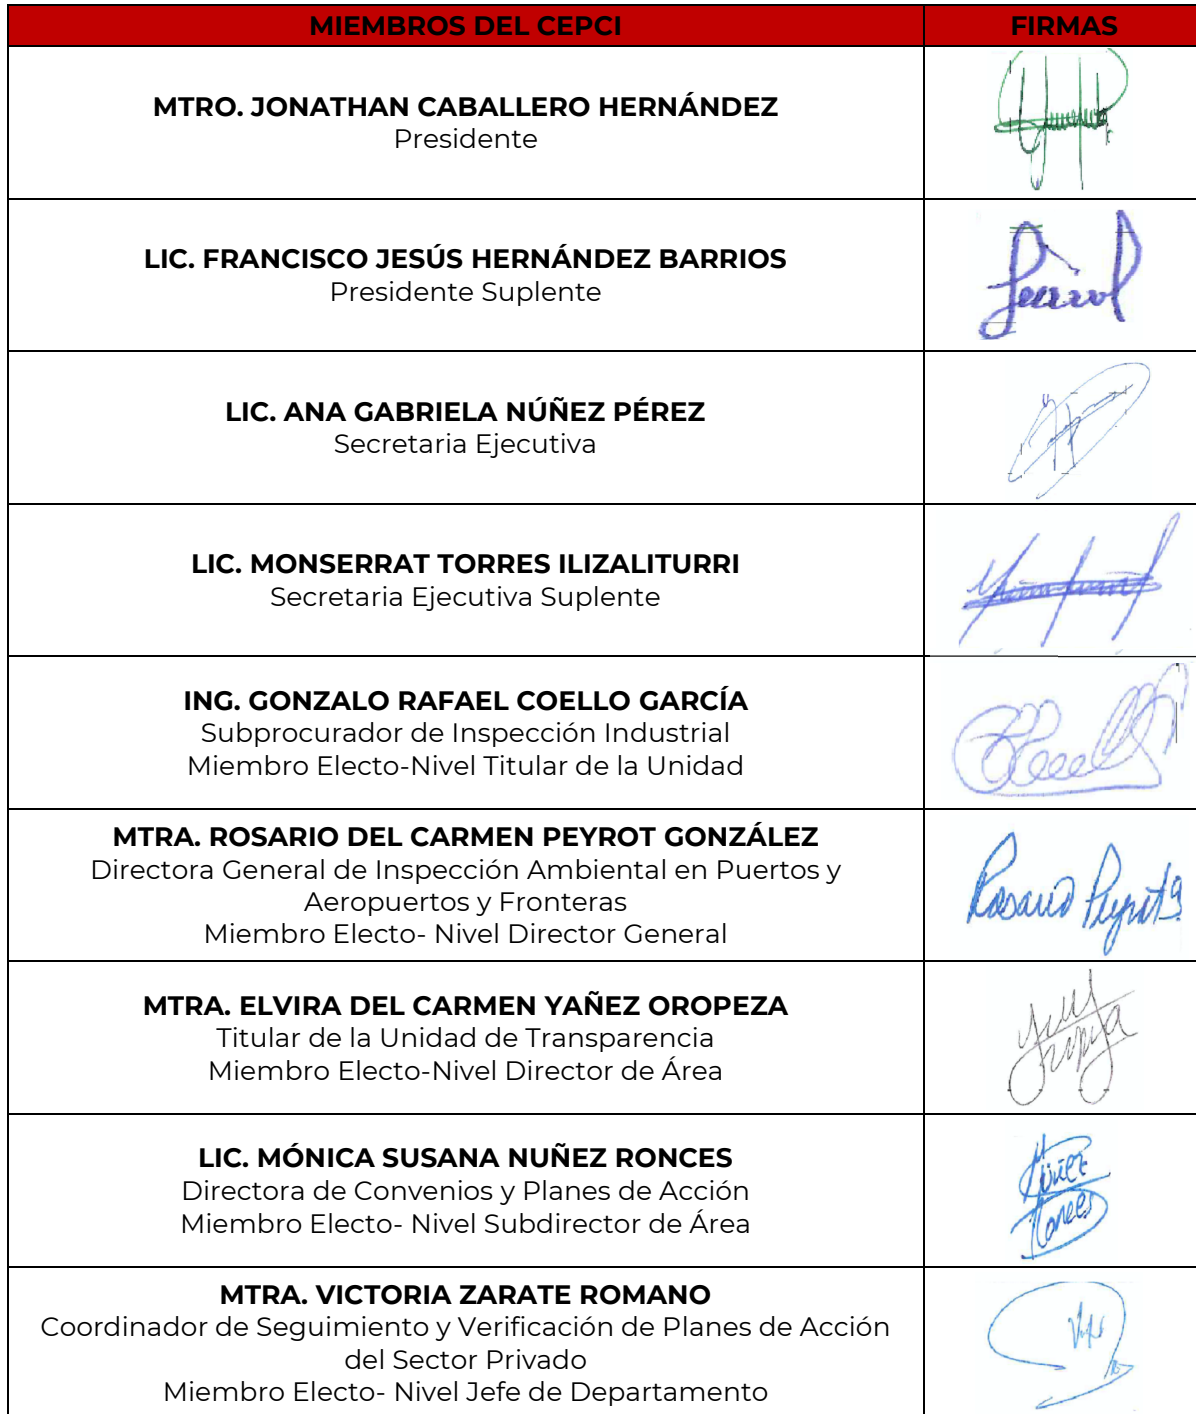 MIEMBROS DEL CEPCI FIRMAS
MTRO. JONATHAN CABALLERO HERNÁNDEZ
Presidente
LIC. FRANCISCO JESÚS HERNÁNDEZ BARRIOS
Presidente Suplente
LIC. ANA GABRIELA NÚÑEZ PÉREZ
Secretaria Ejecutiva
LIC. MONSERRAT TORRES ILIZALITURRI
Secretaria Ejecutiva Suplente
ING. GONZALO RAFAEL COELLO GARCÍA
Subprocurador de Inspección Industrial
Miembro Electo-Nivel Titular de la Unidad
MTRA. ROSARIO DEL CARMEN PEYROT GONZÁLEZ
Directora General de Inspección Ambiental en Puertos y
Aeropuertos y Fronteras
Miembro Electo- Nivel Director General
Rosario Peyrot G.
MTRA. ELVIRA DEL CARMEN YAÑEZ OROPEZA
Titular de la Unidad de Transparencia
Miembro Electo-Nivel Director de Área
LIC. MÓNICA SUSANA NUÑEZ RONCES
Directora de Convenios y Planes de Acción
Miembro Electo- Nivel Subdirector de Área
Núñez
Ronces
MTRA. VICTORIA ZARATE ROMANO
Coordinador de Seguimiento y Verificación de Planes de Acción
del Sector Privado
Miembro Electo- Nivel Jefe de Departamento